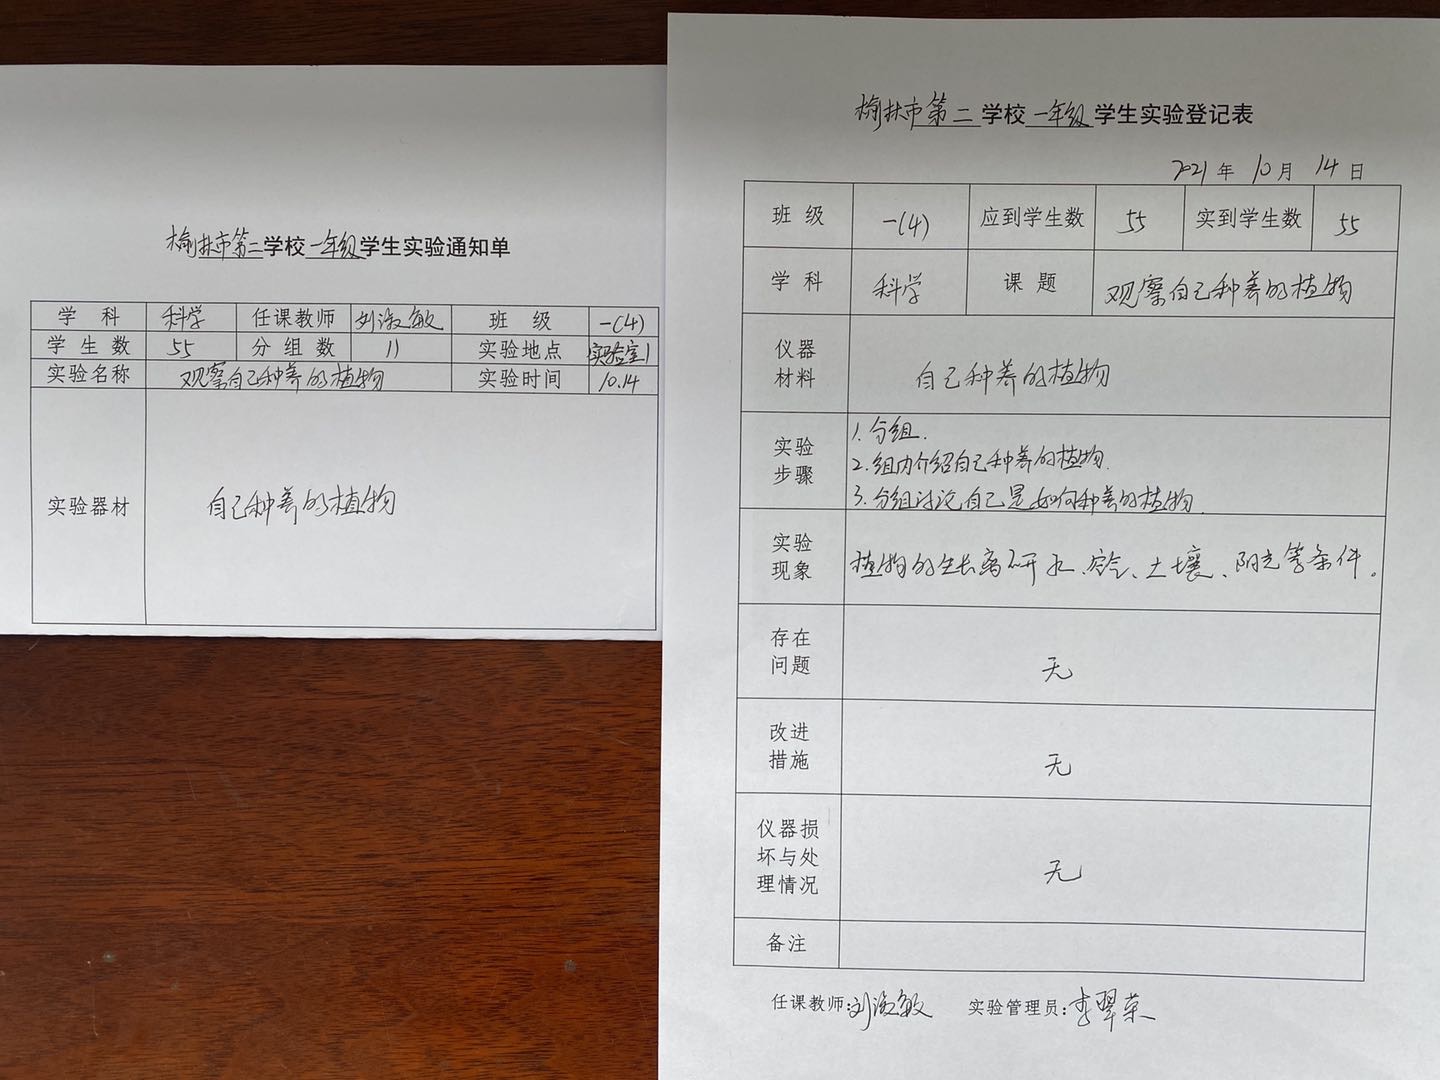 榆林市第二学校一年级学生实验通知单
学科 科学 任课教师 刘淑敏 班级 一(4)
学生数 55 分组数 11 实验地点 实验室1
实验名称 观察自己种养的植物 实验时间 10.14
实验器材 自己种养的植物
榆林市第二学校一年级学生实验登记表
2021年10月14日
班级 一(4) 应到学生数 55 实到学生数 55
学科 科学 课题 观察自己种养的植物
仪器材料 自己种养的植物
实验步骤
1.分组.
2.组内介绍自己种养的植物.
3.分组讨论自己是如何种养的植物.
实验现象 植物的生长离不开水、空气、土壤、阳光等条件。
存在问题 无
改进措施 无
仪器损坏与处理情况 无
备注
任课教师:刘淑敏 实验管理员:李翠荣